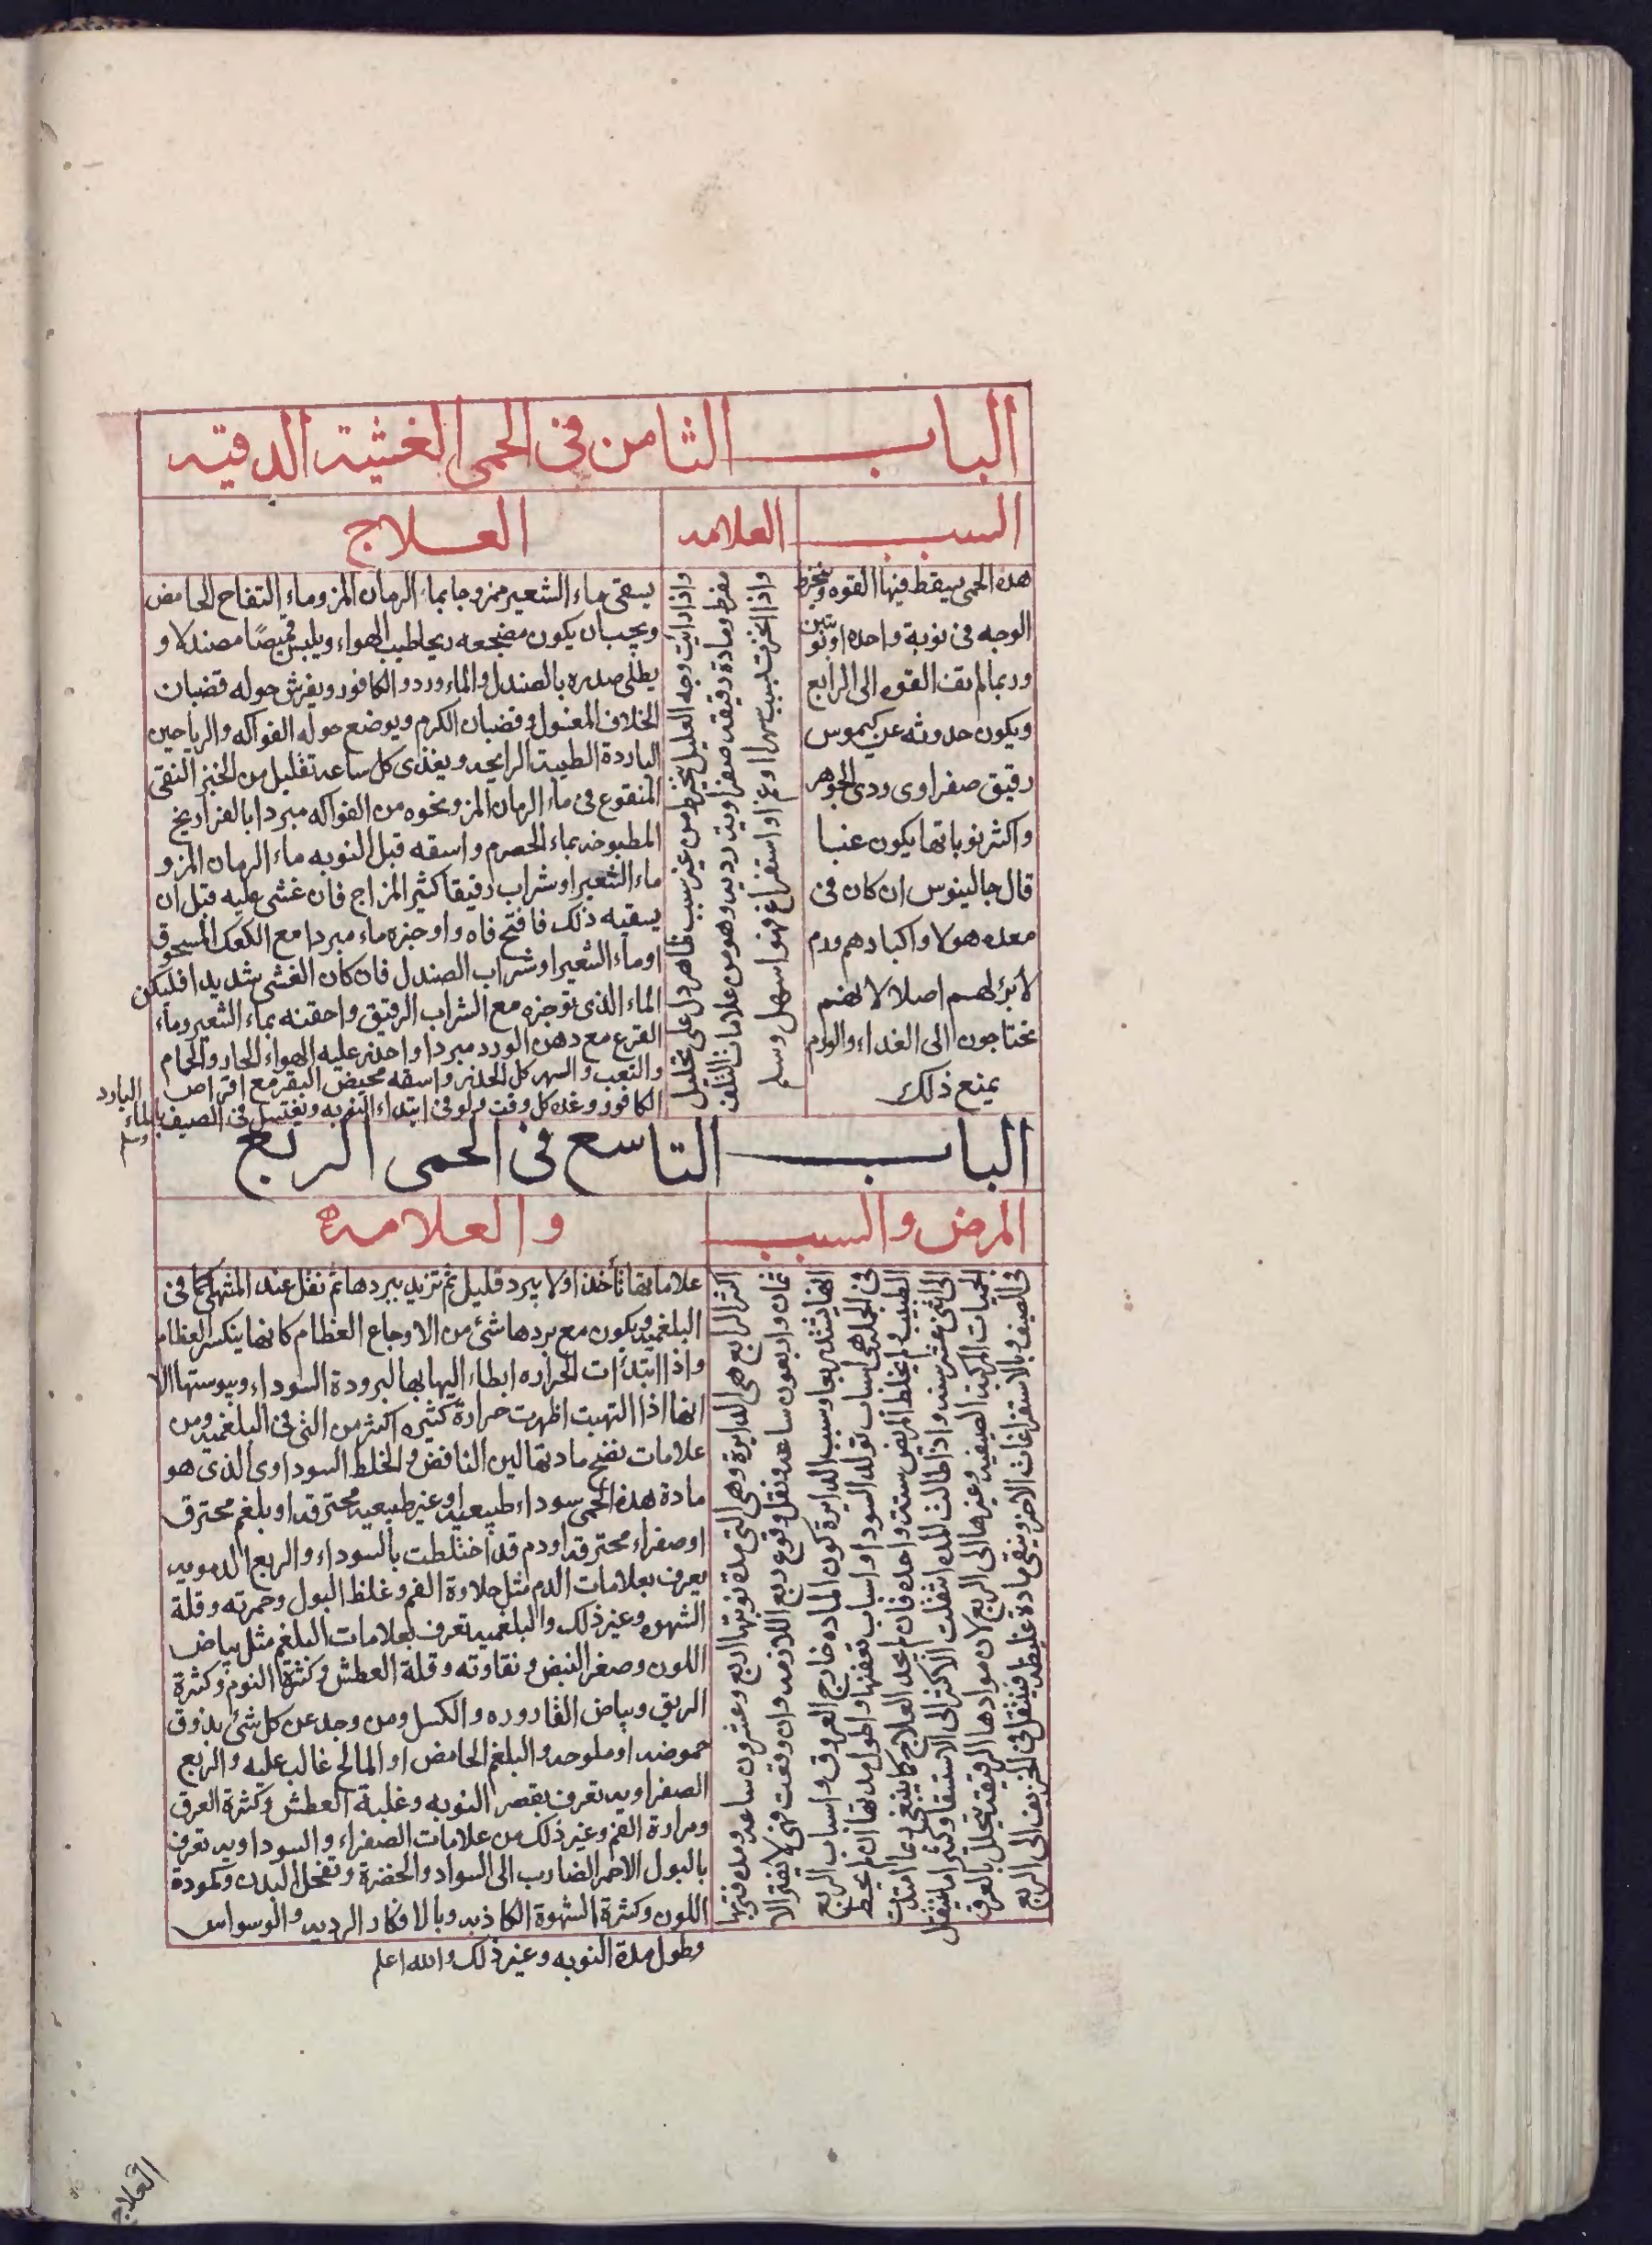 الباب الثامن في الحمى الغشية الدقية
السبب
العلامه
العلاج
هذه الحمى يسقط فيها القوه وينخرط
الوجه في نوبة واحده او نوبتين
وربما لم يقف القوه الى الرابع
ويكون حدوثه عن كيموس
رقيق صفراوى ردى الجوهر
واكثر نوباتها يكون غبا
قال جالينوس ان كان في
معده هولا واكبادهم ورم
لا برء لهم اصلا لانهم
يحتاجون الى الغداء والورم
يمنع ذلك
واذا رايت وجه العليل ينخرط من غير سبب ظاهر دل على تحليل
مفرط ومادة رقيقه صفراويه رديه وهو من علامات التلف
واذا انخرت لسبب سهر او غم او استفراغ فهو اسهل وسلم
يسقى ماء الشعير ممزوجا بماء الرمان المز وماء التفاح الحامض
ويجب ان يكون مضجعه ريحا طيب الهواء ويلبس قميصًا مصندلا و
يطلى صدره بالصندل والماء ورد والكافور ويفرش حوله قضبان
الخلاف المغسول وقضبان الكرم ويوضع حوله الفواكه والرياحين
الباردة الطيبة الرايحه ويغذى كل ساعه بقليل من الخبز النقى
المنقوع في ماء الرمان المز ونحوه من الفواكه مبردا بالفراريخ
المطبوخه بماء الحصرم واسقه قبل النوبه ماء الرمان المز و
ماء الشعير او شراب رقيقا كثير المزاج فان غشى عليه قبل ان
يسقيه ذلك فافتح فاه واوجزه ماء مبردا مع الكعك المسحوق
اوماء الشعير او شراب الصندل فان كان الغشى شديدا فليكن
الماء الذى توجزه مع الشراب الرقيق واحقنه بماء الشعير وماء
القرع مع دهن الورد مبردا واحذر عليه الهواء الحار والحمام
والتعب والسهر كل الحذر واسقه مخيض البقر مع اقراص
الكافور وغده كل وقت ولو في ابتداء النوبه ويغتسل في الصيف بالماء
البارد
وسلم
الباب التاسع في الحمى الربع
المرض والسبب
والعلامه
اكثر الرابع هى الدايرة وهى التى مدة نوبتها اربع وعشرون ساعه ومده فترتها
ثمان واربعون ساعه ونقل وقوع ربع اللازمه وان وقعت فهى لا يفتر الا
انها يشتد ربعا وسبب الدايرة كون الماده خارج العروق واسباب الربع
في الجمله هى اسباب تولد السودا واسباب تعفنها واطول مدتها ان لم يخط
الطبيب ولم يخلط المريض سنة واحده فان لم يجد العلاج كما ينبغى ربما امتدت
الى اثنى عشر سنه واذا طالت المده انتقلت الاكثر الى الاستسقا وكثيرا ما ينتقل
الحميات المركبه الصيفيه وغيرها الى الربع لان موادها الرقيقه يتحلل بالعرق
في الصيف وبالاستفراغات الاخر ويبقى مادة غليظه فينتقل في الخريف الى الربع
علاماتها تأخذ اولا ببرد قليل ثم تزيد ببردها ثم نقل عند المنتهى كما في
البلغميه ويكون مع بردها شئ من الاوجاع العظام كانها ينكسر العظام
واذا ابتدأت الحراره ابطاء الهابها لبرودة السوداء ويبوستها الا
انها اذا التهبت اظهرت حرارة كثيره اكثر من التى في البلغميه ومن
علامات نضج مادتها لين النافض والخلط السوداوى الذى هو
مادة هذه الحمى سوداء طبيعيه او غير طبيعيه محترقه او بلغم محترق
او صفراء محترقه او دم قد اختلطت بالسوداء والربع الدمويه
يعرف بعلامات الدم مثل حلاوة الفم وغلظ البول وحمرته وقلة
الشهوه وغير ذلك والبلغميه تعرف بعلامات البلغم مثل بياض
اللون وصغر النبض ونقاوته وقلة العطش وكثرة النوم وكثرة
الريق وبياض القاروره والكسل ومن وجد عن كل شئ يذوق
حموضه او ملوحه والبلغم الحامض او المالح غالب عليه والربع
الصفراويه تعرف بقصر النوبه وغلبة العطش وكثرة العرق
ومرارة الفم وغير ذلك من علامات الصفراء والسوداويه تعرف
بالبول الاحمر الضارب الى السواد والخضرة وتقحل البدن وكمودة
اللون وكثرة الشهوة الكاذبه وبالافكار الرديه والوسواس
وطول مدة النوبه وغير ذلك والله اعلم
العلاج